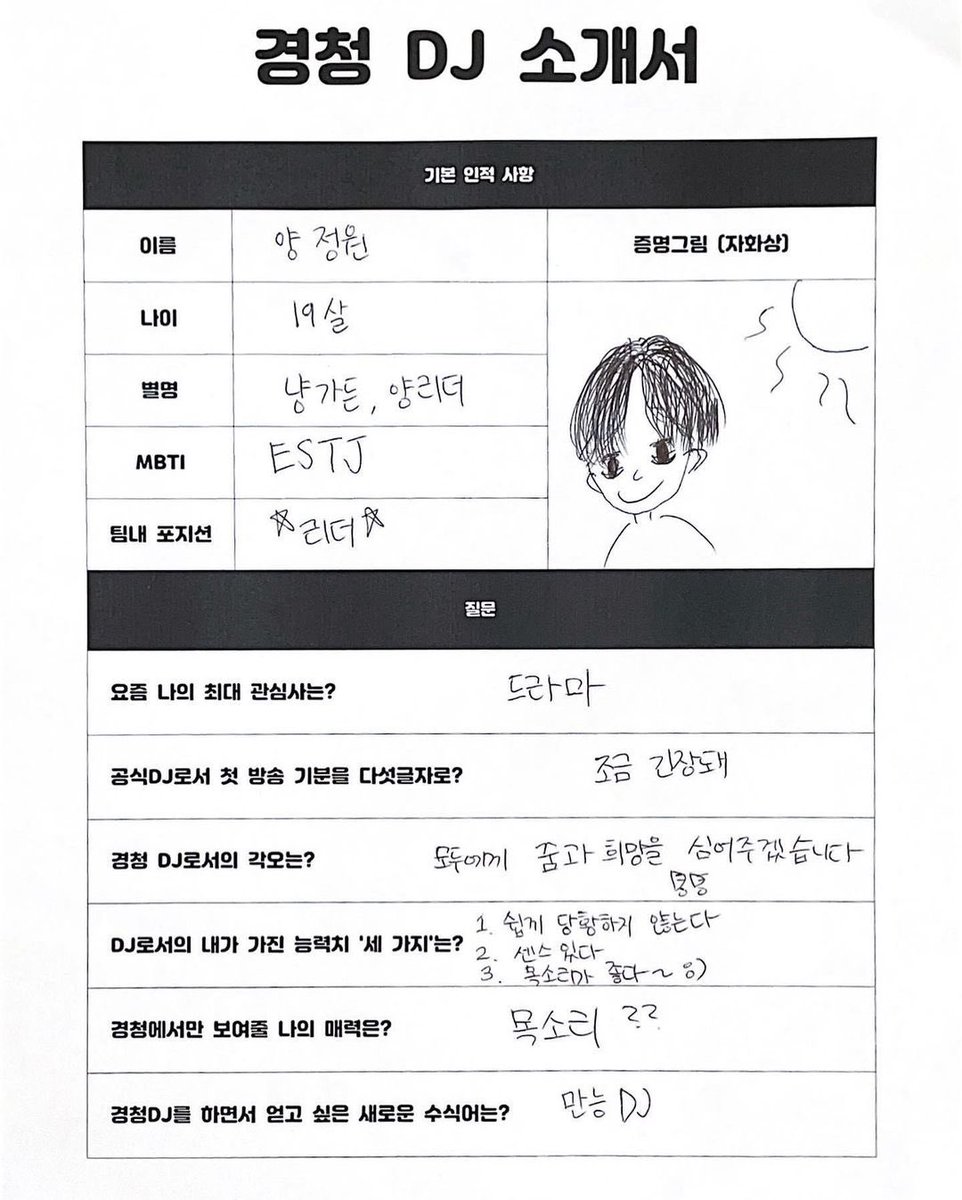 경청 DJ 소개서
기본 인적 사항
이름
양 정원
증명그림 (자화상)
나이
19살
별명
냥가든, 양리더
MBTI
ESTJ
팀내 포지션
☆리더☆
질문
요즘 나의 최대 관심사는?
드라마
공식DJ로서 첫 방송 기분을 다섯글자로?
조금 긴장돼
경청 DJ로서의 각오는?
모두에게 꿈과 희망을 심어주겠습니다
DJ로서의 내가 가진 능력치 '세 가지'는?
1. 쉽게 당황하지 않는다
2. 센스 있다
3. 목소리가 좋다~ :)
경청에서만 보여줄 나의 매력은?
목소리 ??
경청DJ를 하면서 얻고 싶은 새로운 수식어는?
만능 DJ